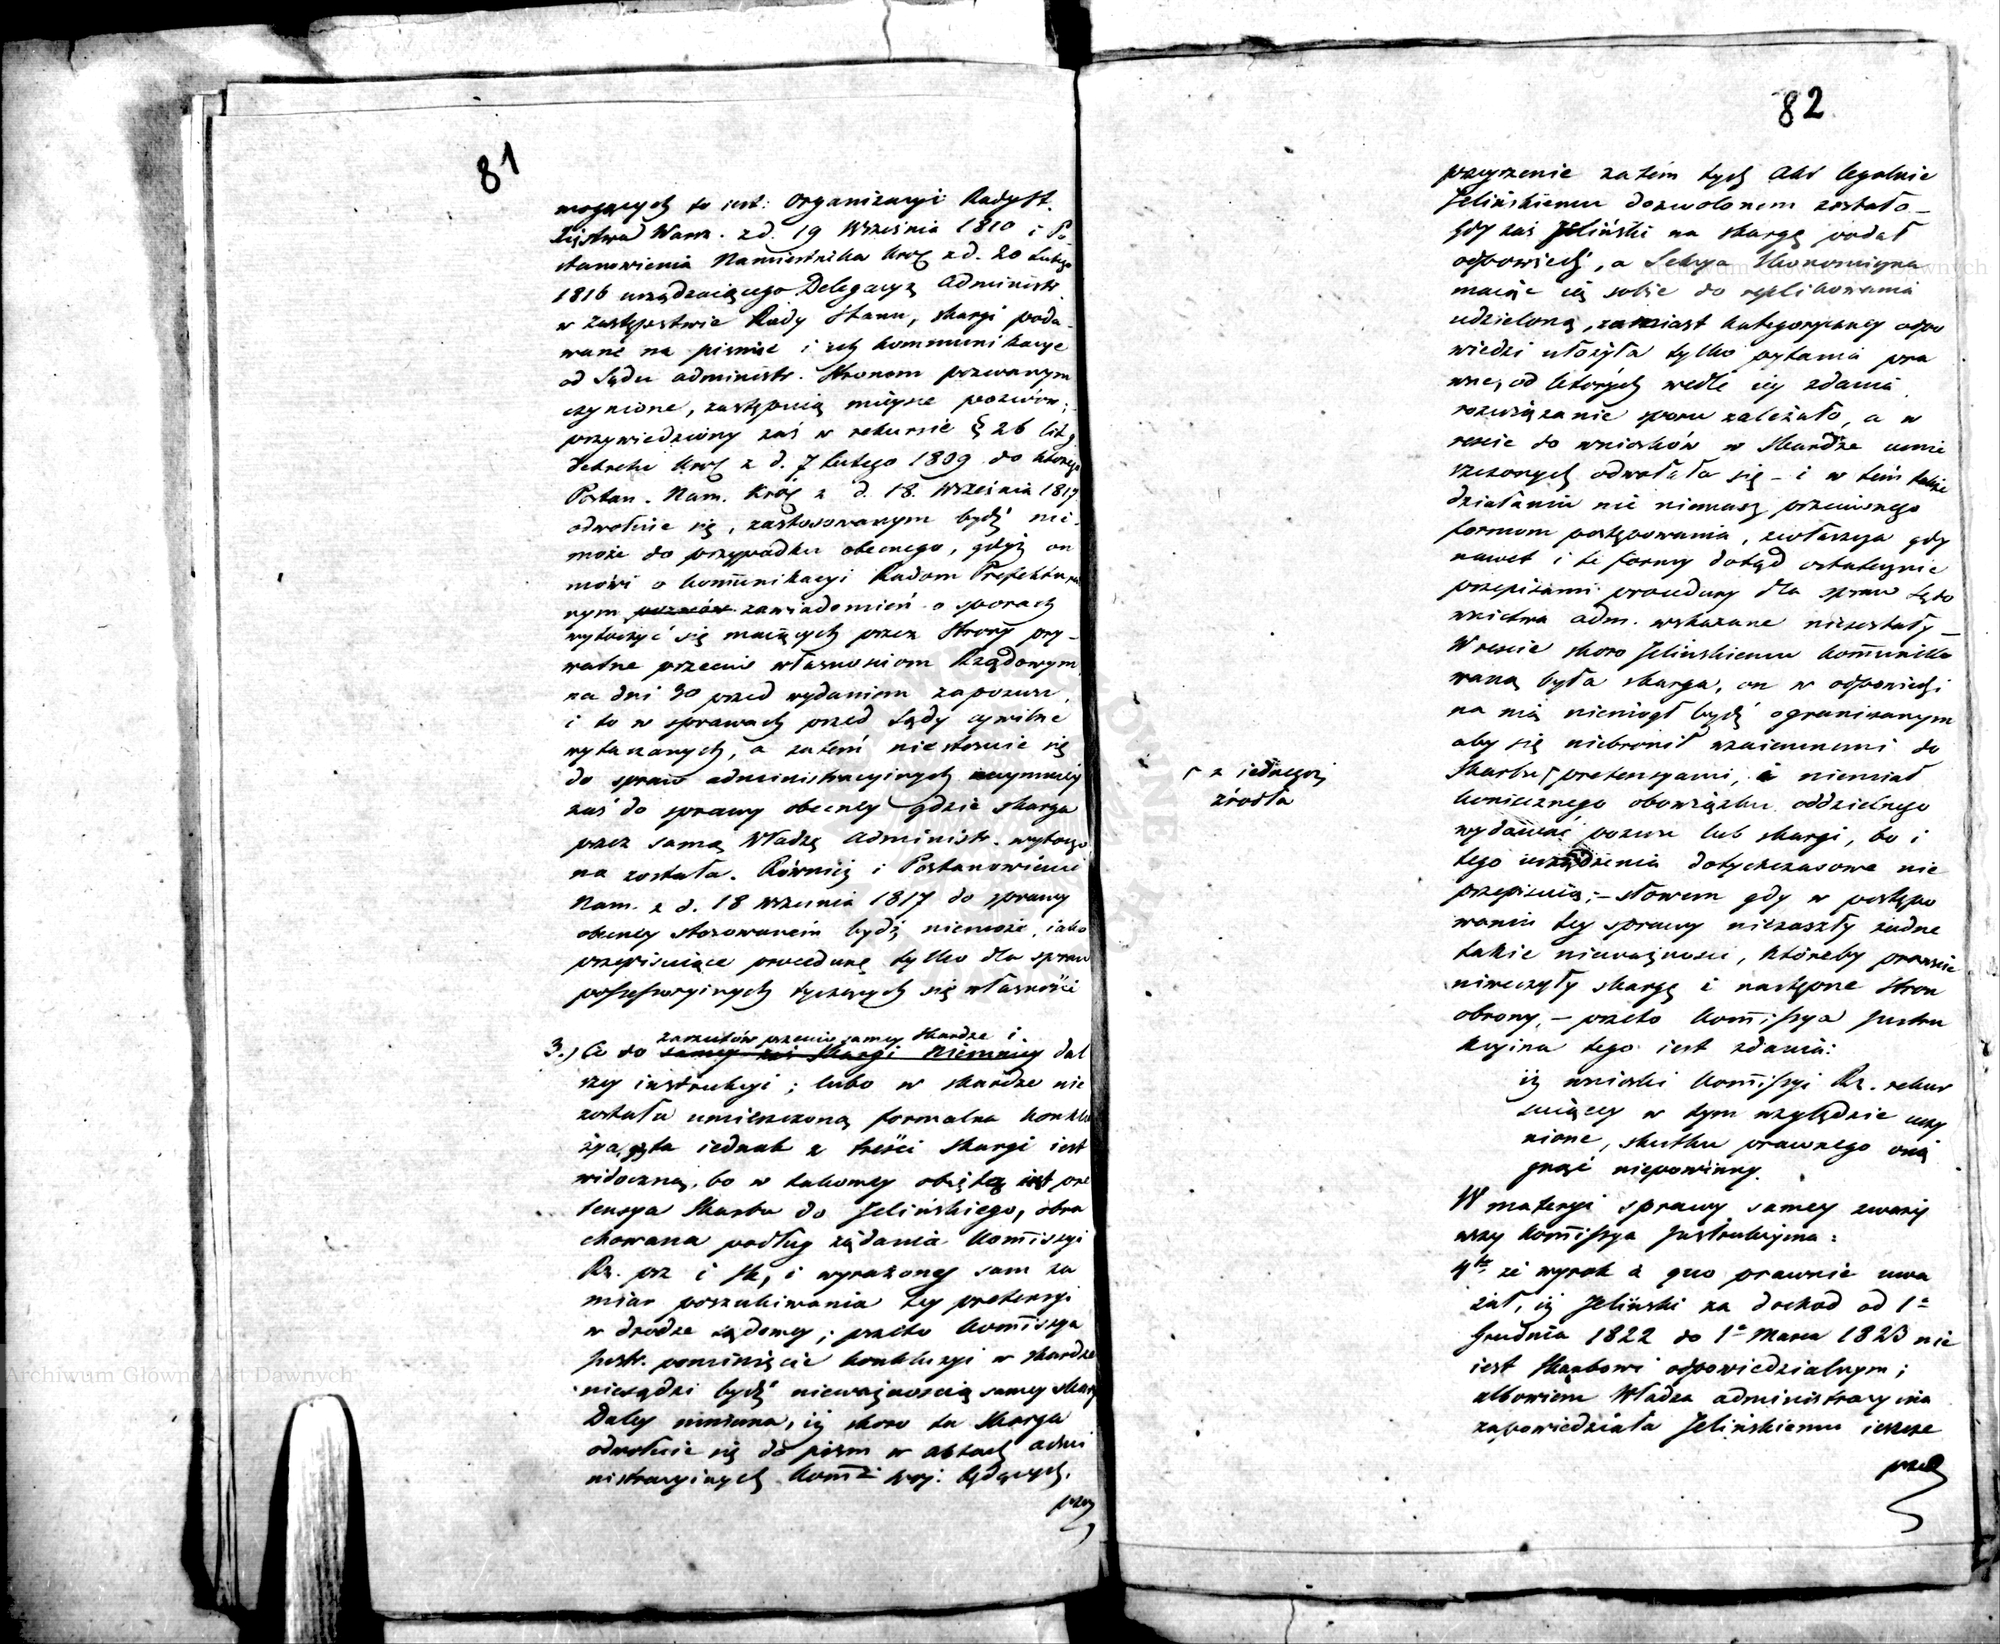 81
mogących to iest: Organizacyi Rady St.
Xięstwa Warsz. z d. 19 Września 1810 i Po
stanowienia Namiestnika Król z d. 20 Lutego
1816 urządzaiącego Delegacyą Administr.
w zastępstwie Rady Stanu, skargi poda-
wane na piśmie i ich kommunikacye
od Sądu administr. Stronom pozwanym
czynione, zastępuią mieysce pozwów;
przywiedziony zaś w rekursie § 26 lit g
Dekretu Król z d. 7 Lutego 1809 do którego
Postan. Nam. Król z d. 18. Września 1817
odwołuie się, zastosowanym bydź nie
może do przypadku obecnego, gdyż on
mówi o kommunikacyi Radom Prefektu
nym pozwów zawiadomień o sporach
wytoczyć się maiących przez Strony pry-
watne przeciw własnościom Rządowym
na dni 30 przed wydaniem zapozwu,
i to w sprawach przed Sądy cywilne
wytaczanych, a zatém niestosuie się
do spraw administracyinych naymniey
zaś do sprawy obecney gdzie skarga
przez samą Władzę Administr. wytoczo
na została. Również i Postanowienie
Nam. z d. 18 września 1817 do sprawy
obecney stosowaném bydź niemoże, iako
przepisuiące procedurę tylko dla spraw
possessoryinych tyczących się własności
zarzutów przeciw samey skardze i
3.) Co do samey zaś skargi niemniey dal
szey instrukcyi; lubo w skardze nie
została umieszczoną formalna konklu
zya, ta iednak z treści skargi iest
widoczną, bo w takowey obiętą iest pre
tensya Skarbu do Jelińskiego, obra
chowana podług żądania Kommissyi
Rz. prz i Sk, i wyrażoney sam za
miar poszukiwania tey pretensyi
w drodze sądowey; przeto Kommissya
Instr. pominięcie konkluzyi w skardze
niesądzi bydź nieważnością samey skarg
Daley mniema, iż skoro ta skarga
odwołuie się do pism w aktach admi
nistracyinych Komm: woj: będących,
przey
82
przeyrzenie zatém tych Akt legalnie
Jelińskiemu dozwolonem zostało –
gdy zaś Jeliński na skargę podał
odpowiedź, a Sekcya Ekonomiczna
maiąc ią sobie do replikowania
udzieloną, zamiast kategoryczney odpo
wiedzi ułożyła tylko pytania pra
wne, od których wedle iey zdania
rozwiązanie sporu zależało, a w
reście do wniosków w Skardze umie
szczonych odwołała się – i w tém także
działaniu nic niemasz przeciwnego
formom postępowania, zwłaszcza gdy
nawet i te formy dotąd ostatecznie
przepisami procedury dla spraw Sądo
wnictwa adm. wskazane niezostały –
Wreście skoro Jelińskiemu kommuniko
waną była skarga, on w odpowiedzi
na nią niemógł bydź ograniczanym
aby się niebronił wzaiemnemi do
Skarbu pretensyami, a niemiał
koniecznego obowiązku oddzielnego
wydawać pozwu lub skargi, bo i
tego urządzenia dotychczasowe nie
przepisuią; – słowem gdy w postępo
waniu tey sprawy niezaszły żadne
takie nieważności, któreby prawnie
niweczyły skargę i następne Stron
obrony, – przeto Kommissya Instru
kcyina tego iest zdania:
iż wnioski Kommissyi Rz. rekur
suiącey w tym względzie uczy
nione, skutku prawnego osią
gnąć niepowinny.
W materyi sprawy samey zważy
wszy Kommissya Instrukcyina:
że wyrok a quo prawnie uwa
żał, iż Jeliński za dochod od 1º
Grudnia 1822 do 1º Marca 1823 nie
iest Skarbowi odpowiedzialnym;
albowiem Władza administracyina
zapowiedziała Jelińskiemu ieszcze
przed
z iednegoż
źrodła
Archiwum Główne Akt Dawnych